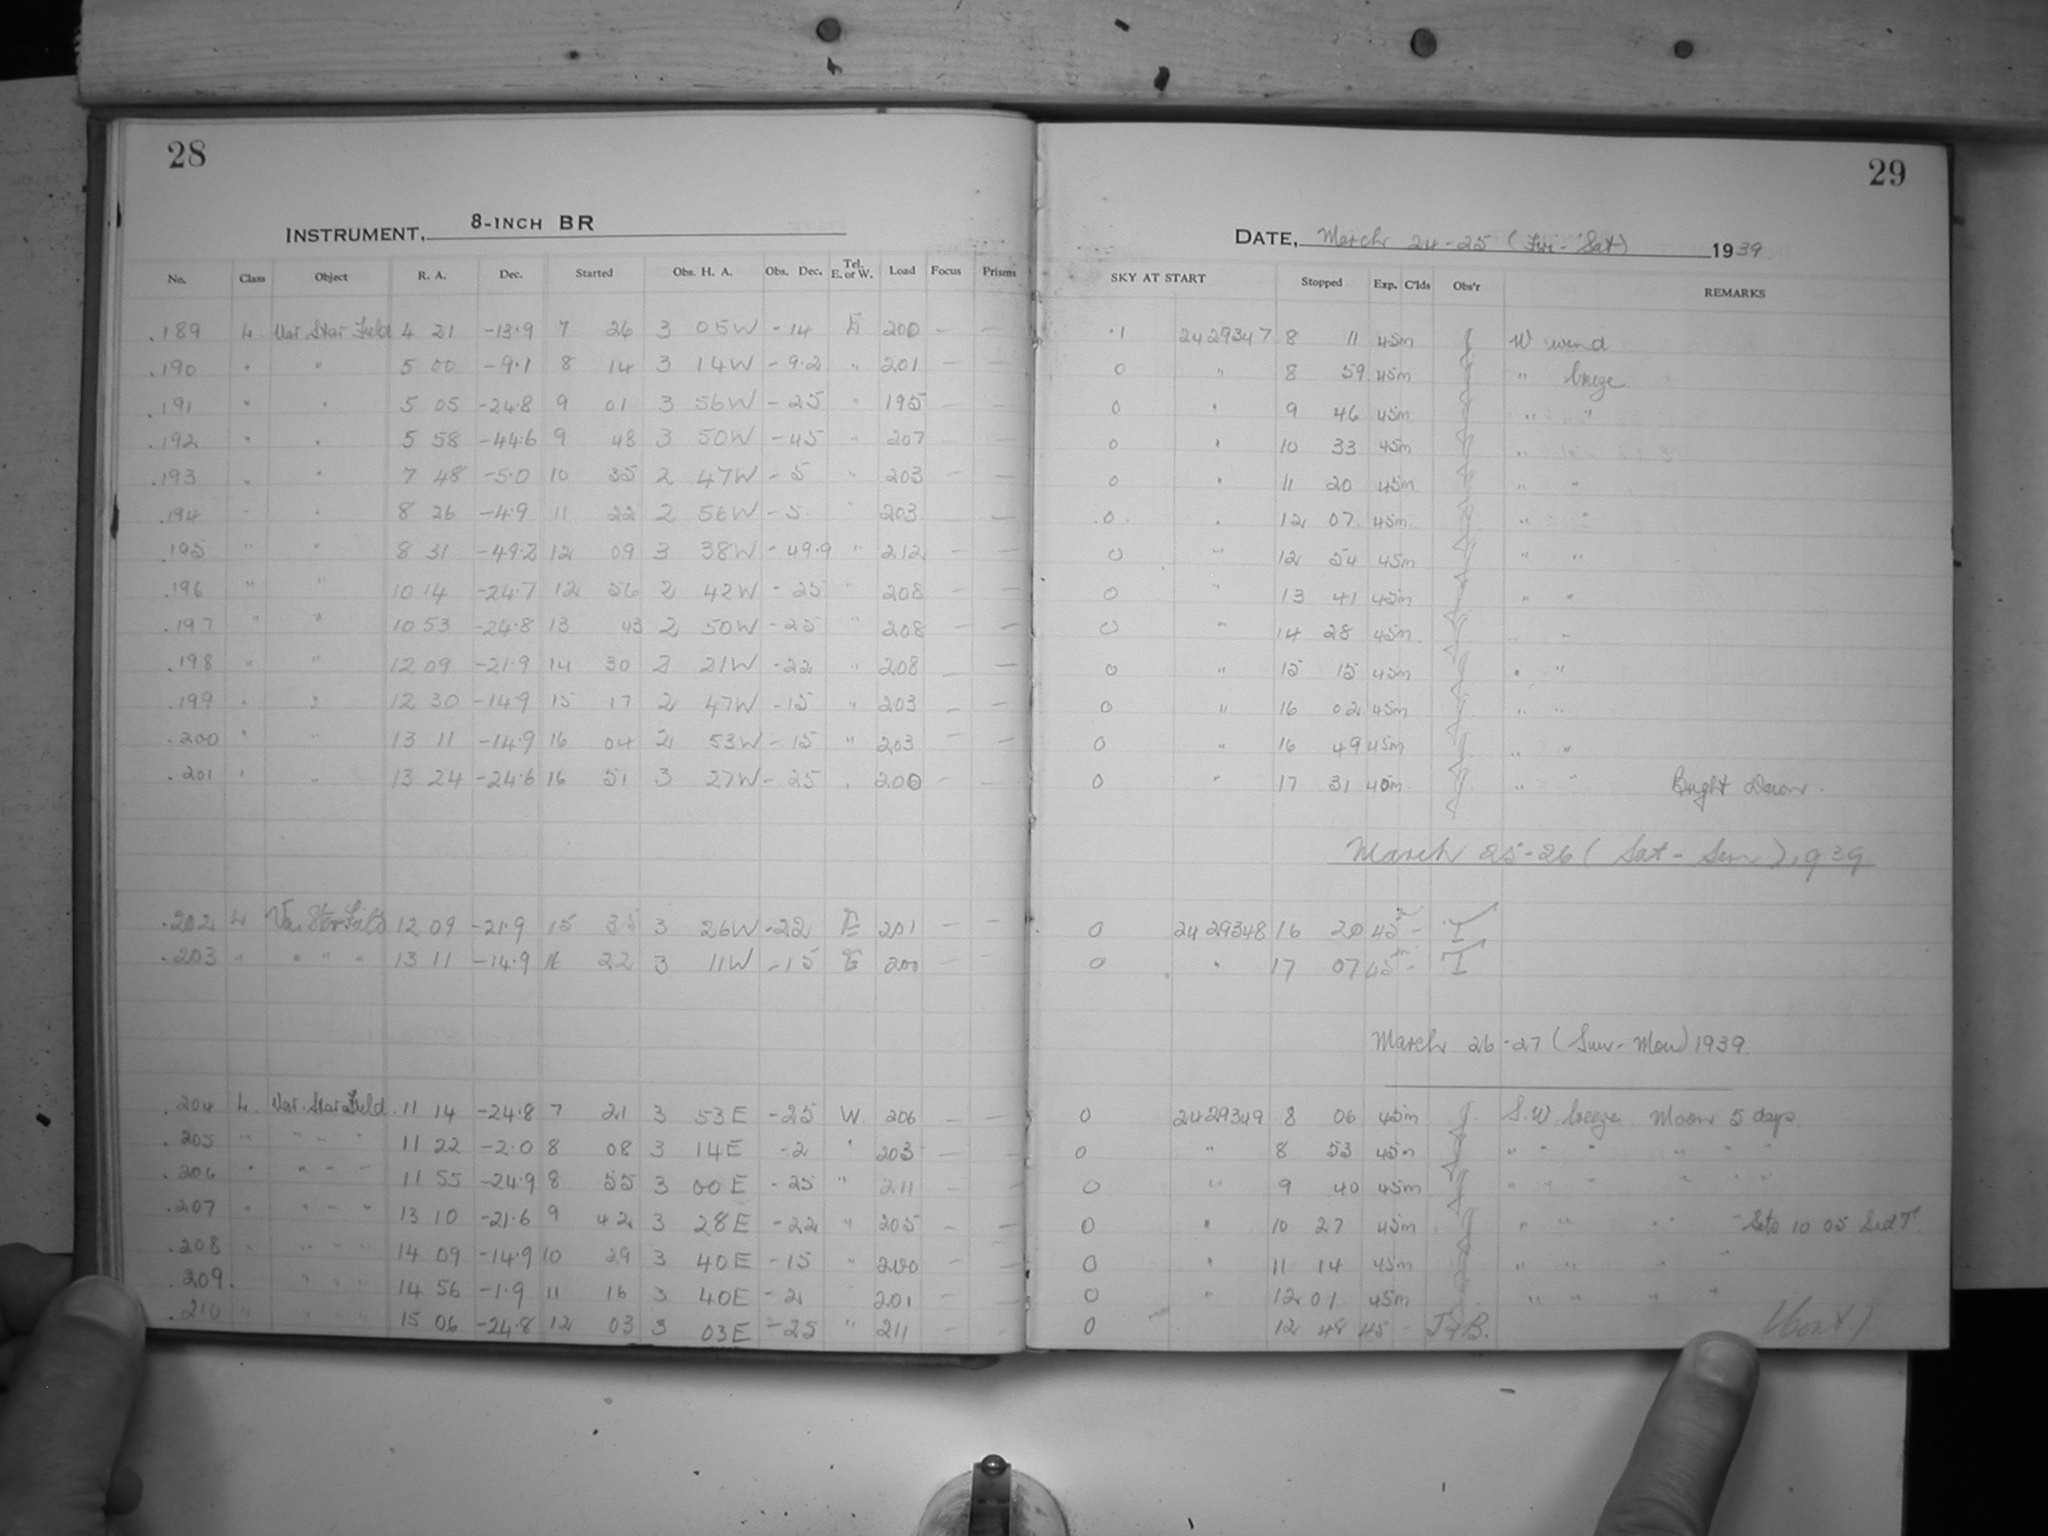 28
INSTRUMENT, 8-INCH BR
No. Class Object R. A. Dec. Started Obs. H. A. Obs. Dec. Tel. E. or W. Load Focus Prisms
.189 L Var. Star Field 4 21 -13.9 7 26 3 05W -14 E 200 — —
.190 " " 5 00 -9.1 8 14 3 14W -9.2 " 201 — —
.191 " " 5 05 -24.8 9 01 3 56W -25 " 195 — —
.192 " " 5 58 -44.6 9 48 3 50W -45 " 207 — —
.193 " " 7 48 -5.0 10 35 2 47W -5 " 203 — —
.194 " " 8 26 -4.9 11 22 2 56W -5 " 203 — —
.195 " " 8 31 -49.2 12 09 3 38W -49.9 " 212 — —
.196 " " 10 14 -24.7 12 56 2 42W -25 " 208 — —
.197 " " 10 53 -24.8 13 43 2 50W -25 " 208 — —
.198 " " 12 09 -21.9 14 30 2 21W -22 " 208 — —
.199 " " 12 30 -14.9 15 17 2 47W -15 " 203 — —
.200 " " 13 11 -14.9 16 04 2 53W -15 " 203 — —
.201 " " 13 24 -24.6 16 51 3 27W -25 " 200 — —
.202 L Var Star Field 12 09 -21.9 15 35 3 26W -22 E 201 — —
.203 " " " " 13 11 -14.9 16 22 3 11W -15 E 200 — —
.204 L. Var. Star Field 11 14 -24.8 7 21 3 53E -25 W. 206 — —
.205 " " " " 11 22 -2.0 8 08 3 14E -2 " 203 — —
.206 " " " " 11 55 -24.9 8 55 3 00E -25 " 211 — —
.207 " " " " 13 10 -21.6 9 42 3 28E -22 " 205 — —
.208 " " " " 14 09 -14.9 10 29 3 40E -15 " 200 — —
.209. " " " 14 56 -1.9 11 16 3 40E -2 201 — —
.210 " " " 15 06 -24.8 12 03 3 03E -25 " 211 — —
29
DATE, March 24-25 (Fri-Sat) 1939
SKY AT START Stopped Exp. C'lds Obs'r REMARKS
.1 2429347 8 11 45m J W wind
0 " 8 59 45m " breeze
0 " 9 46 45m " "
0 " 10 33 45m "
0 " 11 20 45m " "
0 " 12 07 45m " "
0 " 12 54 45m " "
0 " 13 41 45m " "
0 " 14 28 45m " "
0 " 15 15 45m " "
0 " 16 02 45m " "
0 " 16 49 45m " "
0 " 17 31 40m " " Bright Dawn.
March 25-26 (Sat-Sun) 1939
0 2429348 16 20 45m - T
0 " 17 07 45m - T
March 26-27 (Sun-Mon) 1939.
0 2429349 8 06 45m J. S.W. breeze Moon 5 days
0 " 8 53 45m " " " " " "
0 " 9 40 45m " " " " " "
0 " 10 27 45m " " " Sets 10 05 Sid T.
0 " 11 14 45m " " " "
0 " 12 01 45m " " " "
0 12 48 45 - J&B. (Cont.)